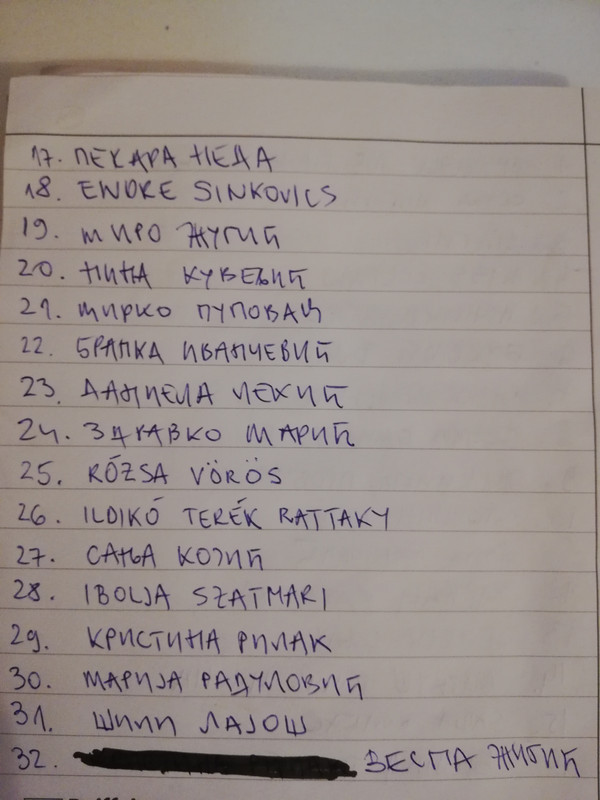 17. ПЕКАРА НЕДА
18. ENDRE SINKOVICS
19. МИРО ЖУГИЋ
20. НИНА КУВЕЉИЋ
21. МИРКО ПУПОВАЦ
22. БРАНКА ИВАНЧЕВИЋ
23. ДАНИЕЛА ЛЕКИЋ
24. ЗДРАВКО МАРИЋ
25. RÓZSA VÖRÖS
26. ILDIKÓ TERÉK RATTAKY
27. САЊА КОЈИЋ
28. IBOLJA SZATMARI
29. КРИСТИНА РИЛАК
30. МАРИЈА РАДУЛОВИЋ
31. ШИПИ ЛАЈОШ
32. ВЕСНА ЖИГИЋ